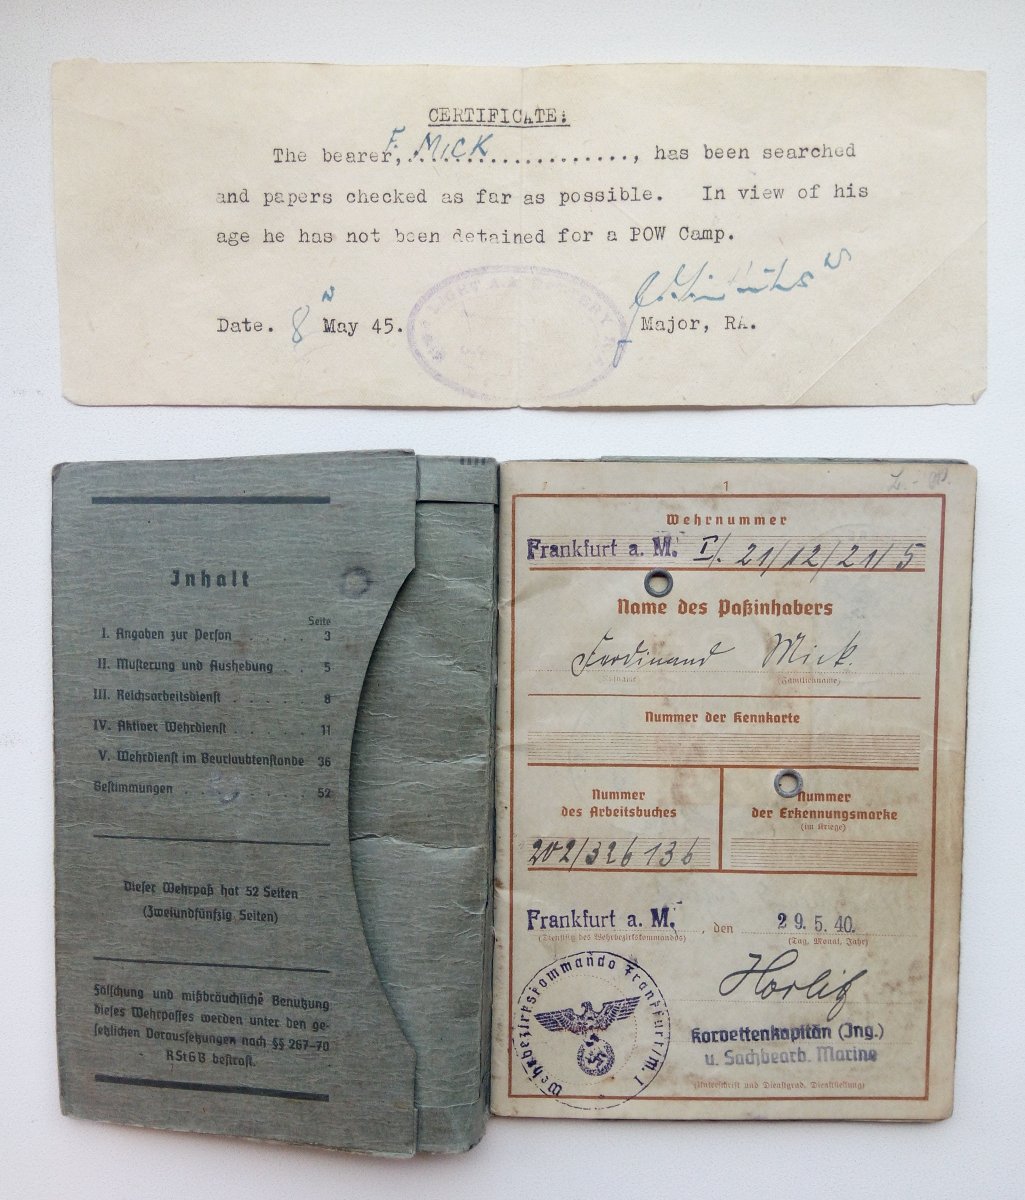 CERTIFICATE:
The bearer, F. MICK ...................., has been searched
and papers checked as far as possible. In view of his
age he has not been detained for a POW Camp.
Date. 8 May 45.
Major, RA.
LIGHT A.A. BATTERY R.A.
Inhalt
Seite
I. Angaben zur Person . . . . 3
II. Musterung und Aushebung . . 5
III. Reichsarbeitsdienst . . . . . 8
IV. Aktiver Wehrdienst . . . . . 11
V. Wehrdienst im Beurlaubtenstande 36
Bestimmungen . . . . . . . . 52
Dieser Wehrpaß hat 52 Seiten
(Zweiundfünfzig Seiten)
Fälschung und mißbräuchliche Benutzung
dieses Wehrpasses werden unter den ge-
setzlichen Voraussetzungen nach §§ 267-70
RStGB bestraft.
1
Wehrnummer
Frankfurt a. M. I/. 21/12/21/5
Name des Paßinhabers
Ferdinand Mick.
(Familienname)
Nummer der Kennkarte
Nummer
des Arbeitsbuches
202/326 136
Nummer
der Erkennungsmarke
(im Kriege)
Frankfurt a. M., den 29. 5. 40.
(Dienstsitz des Wehrbezirkskommandos)
(Tag, Monat, Jahr)
Wehrbezirkskommando Frankfurt/M. I
Korvettenkapitän (Ing.)
u. Sachbearb. Marine
(Unterschrift und Dienstgrad, Dienststellung)